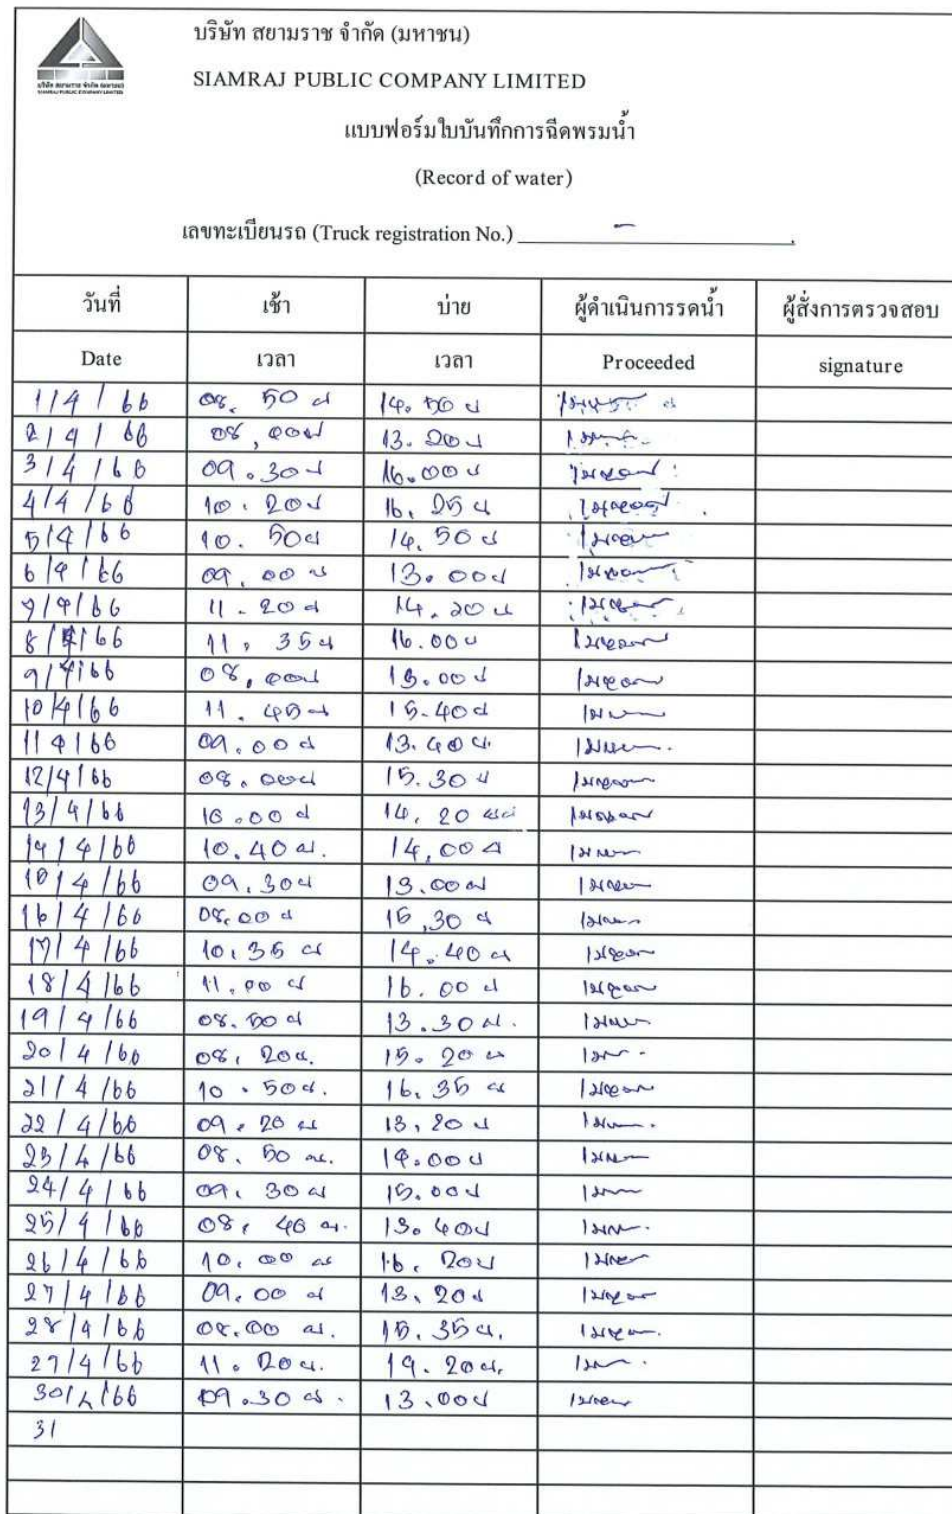 บริษัท สยามราช จำกัด (มหาชน)
บริษัท สยามราช จำกัด (มหาชน)
SIAMRAJ PUBLIC COMPANY LIMITED
SIAMRAJ PUBLIC COMPANY LIMITED
แบบฟอร์มใบบันทึกการฉีดพรมน้ำ
(Record of water)
เลขทะเบียนรถ (Truck registration No.) -
วันที่ เช้า บ่าย ผู้ดำเนินการรดน้ำ ผู้สั่งการตรวจสอบ
Date เวลา เวลา Proceeded signature
1/4/66 08.50 น 14.50 น
2/4/66 08.00น 13.20น
3/4/66 09.30น 16.00น
4/4/66 10.20น 16.25น
5/4/66 10.50น 14.50น
6/4/66 09.00น 13.00น
7/4/66 11.20น 14.20น
8/4/66 11.35น 16.00น
9/4/66 08.00น 13.00น
10/4/66 11.45น 15.40น
11 4/66 09.00น 13.40น.
12/4/66 08.00น 15.30น
13/4/66 10.00น 14.20
14/4/66 10.40น. 14.00น
4/66 09.30น 13.00น
16/4/66 08.00น 15.30น
17/4/66 10.35น 14.40น
18/4/66 11.00น 16.00น
19/4/66 08.50น 13.30น.
20/4/66 08.20น. 15.20น
21/4/66 10.50น. 16.35น
22/4/66 09.20น 13.20น
23/4/66 08.50น. 14.00น
24/4/66 09.30น 15.00น
25/4/66 08.40น. 13.40น
26/4/66 10.00น 16.20น
27/4/66 09.00น 13.20น
28/4/66 08.00น. 15.35น.
29/4/66 11.20น. 14.20น.
30/4/66 09.30น. 13.00น
31